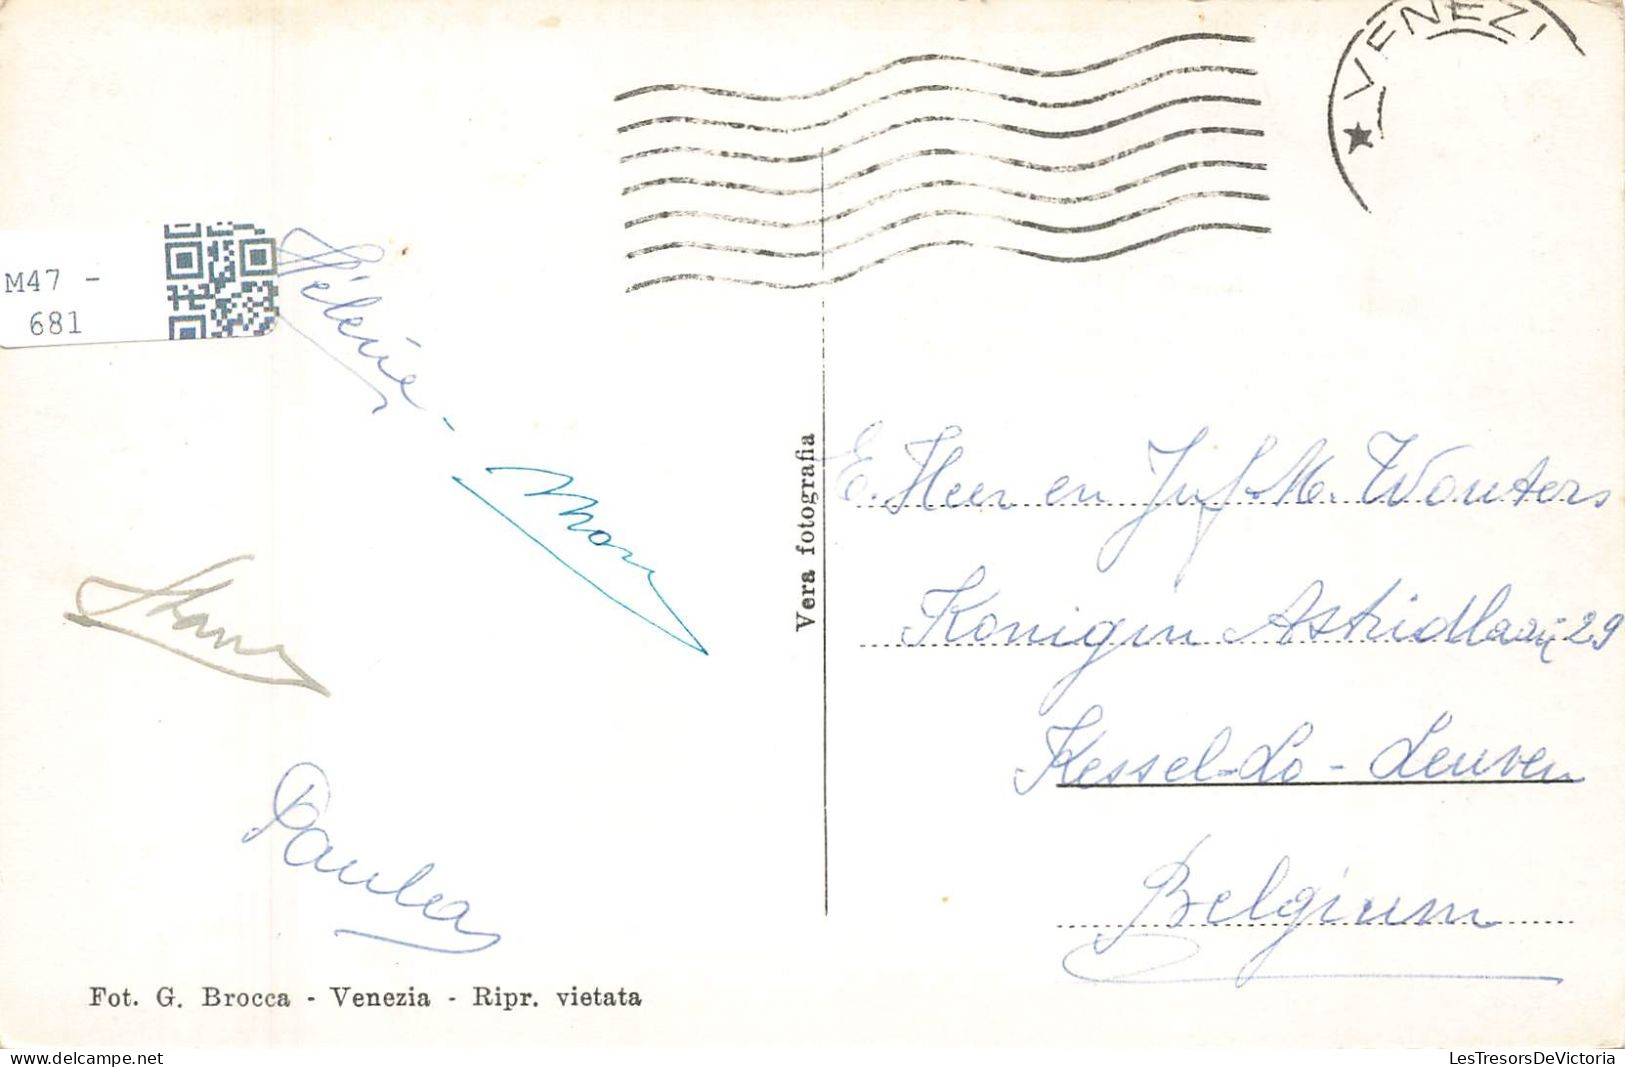 VENEZI
M47 -
681
Hélène -
Paula
Vera fotografia
E. Heer en Juf. M. Wouters
Konigin Astridlaan 29
Kessel-Lo - Leuven
Belgium
Fot. G. Brocca - Venezia - Ripr. vietata
LesTresorsDeVictoria
www.delcampe.net